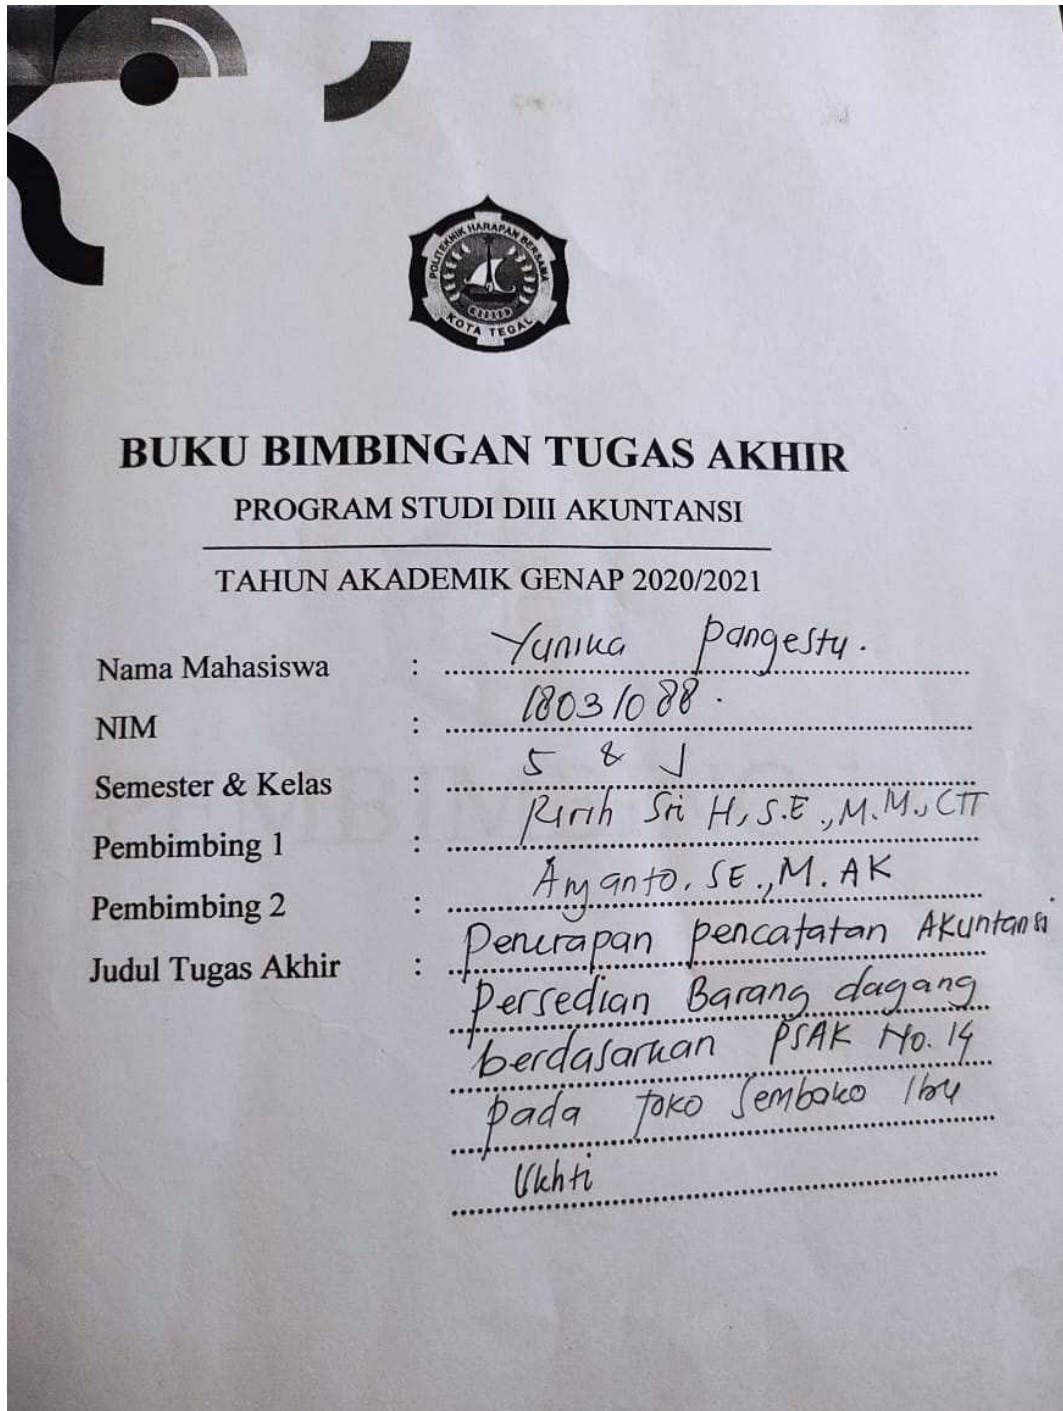 POLITEKNIK HARAPAN BERSAMA
KOTA TEGAL
BUKU BIMBINGAN TUGAS AKHIR
PROGRAM STUDI DIII AKUNTANSI
TAHUN AKADEMIK GENAP 2020/2021
Nama Mahasiswa : Yunika Pangestu.
NIM : 18031088.
Semester & Kelas : 5 & J
Pembimbing 1 : Ririh Sri H, S.E., M.M., CTT
Pembimbing 2 : Aryanto, SE., M. AK
Judul Tugas Akhir : Penerapan pencatatan Akuntansi
Persedian Barang dagang
berdasarkan PSAK No. 14
pada Toko Sembako Ibu
Ukhti